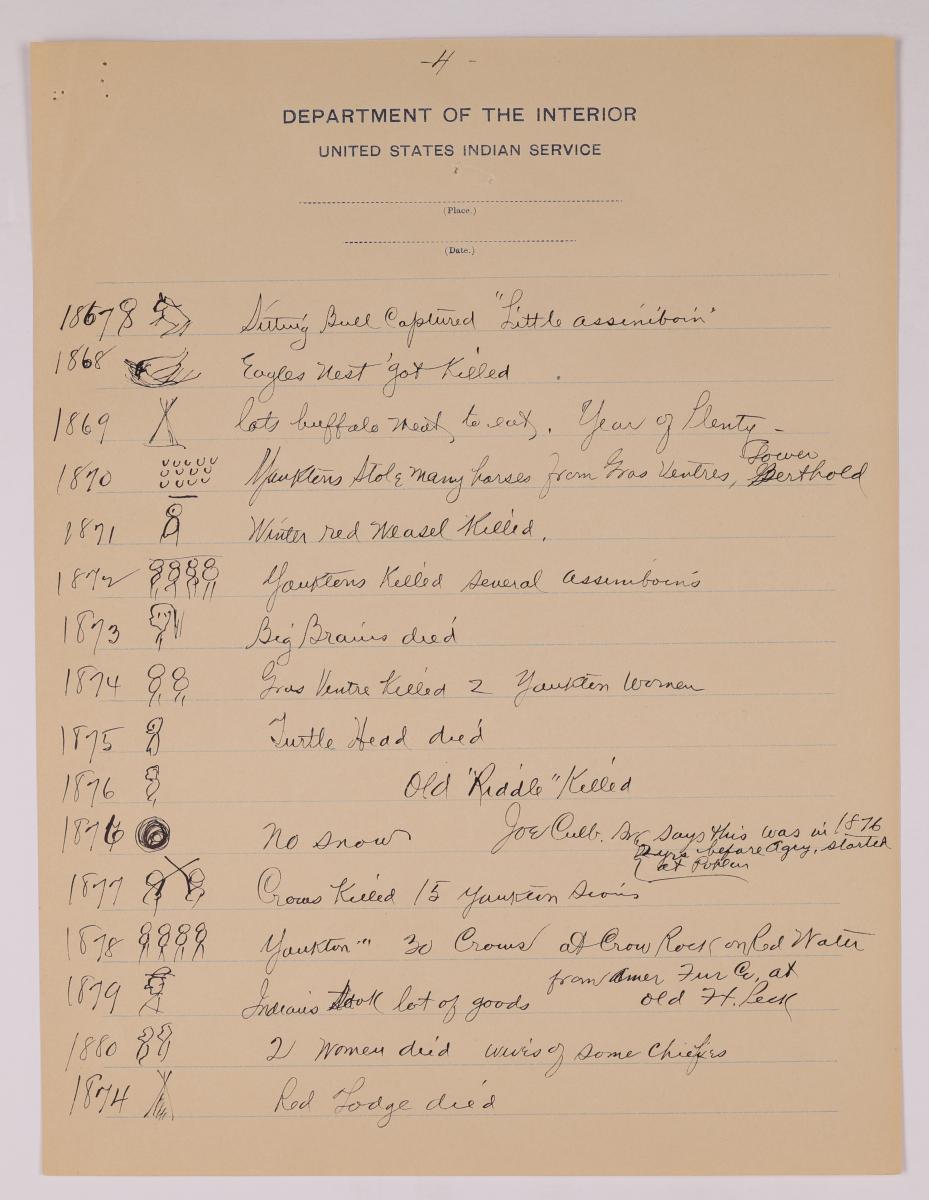 -4-
DEPARTMENT OF THE INTERIOR
UNITED STATES INDIAN SERVICE
(Place.)
(Date.)
1867 Sitting Bull Captured "Little assiniboin"
1868 Eagles Nest got Killed
1869 lots buffalo meat to eat. Year of Plenty -
Lower
1870 Yanktons Stole many horses from Gros Ventres, Berthold
1871 Winter red Weasel Killed.
1872 Yanktons Killed several assiniboins
1873 Big Brains died
1874 Gros Ventre Killed 2 Yankton Women
1875 Turtle Head died
1876 Old "Riddle" Killed
1876 No snow Joe Culb. Sr. says this was in 1876
2 yrs before Agcy. started
at Poplar
1877 Crows Killed 15 Yankton Sioux
1878 Yankton " " 30 Crows at Crow Rock on Red Water
from Amer Fur Co. at
1879 Indians took lot of goods old Ft. Peck
1880 2 Women died wives of some Chiefes
1874 Red Lodge died